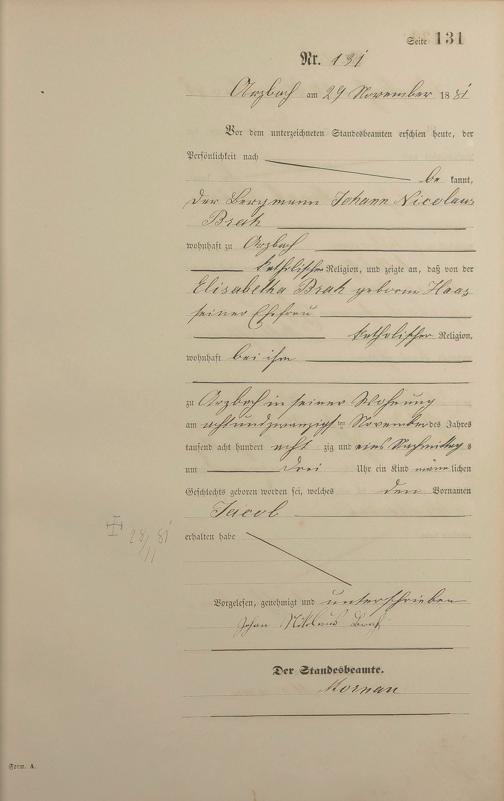 Seite 131
Nr. 131
Arzbach am 29 November 1881
Vor dem unterzeichneten Standesbeamten erschien heute, der
Persönlichkeit nach
be kannt,
der Bergmann Johann Nicolaus
Brah
wohnhaft zu Arzbach
katholischer Religion, und zeigte an, daß von der
Elisabetha Brah geborne Haas
seiner Ehefrau
katholischer Religion,
wohnhaft bei ihm
zu Arzbach in seiner Wohnung
am achtundzwanzigsten November des Jahres
tausend acht hundert acht zig und eins Nachmittags
um drei Uhr ein Kind männlichen
Geschlechts geboren worden sei, welches den Vornamen
Jacob
28/11 81
erhalten habe
Vorgelesen, genehmigt und unterschrieben
Johan Nikolaus
Der Standesbeamte.
Form. A.